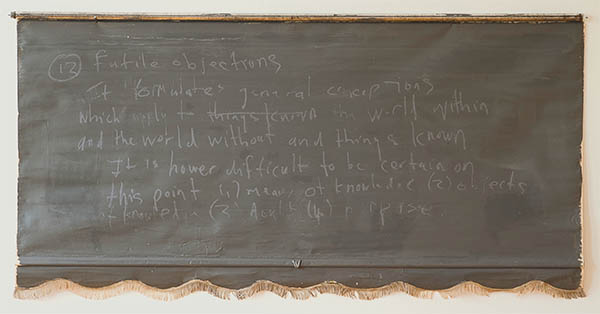 (12) Futile objections
It formulates general conceptions
which apply to things known the world within
and the world without and things known
It is hower difficult to be certain on
this point (1) means of knowledge (2) objects
(2) (4) purpose.